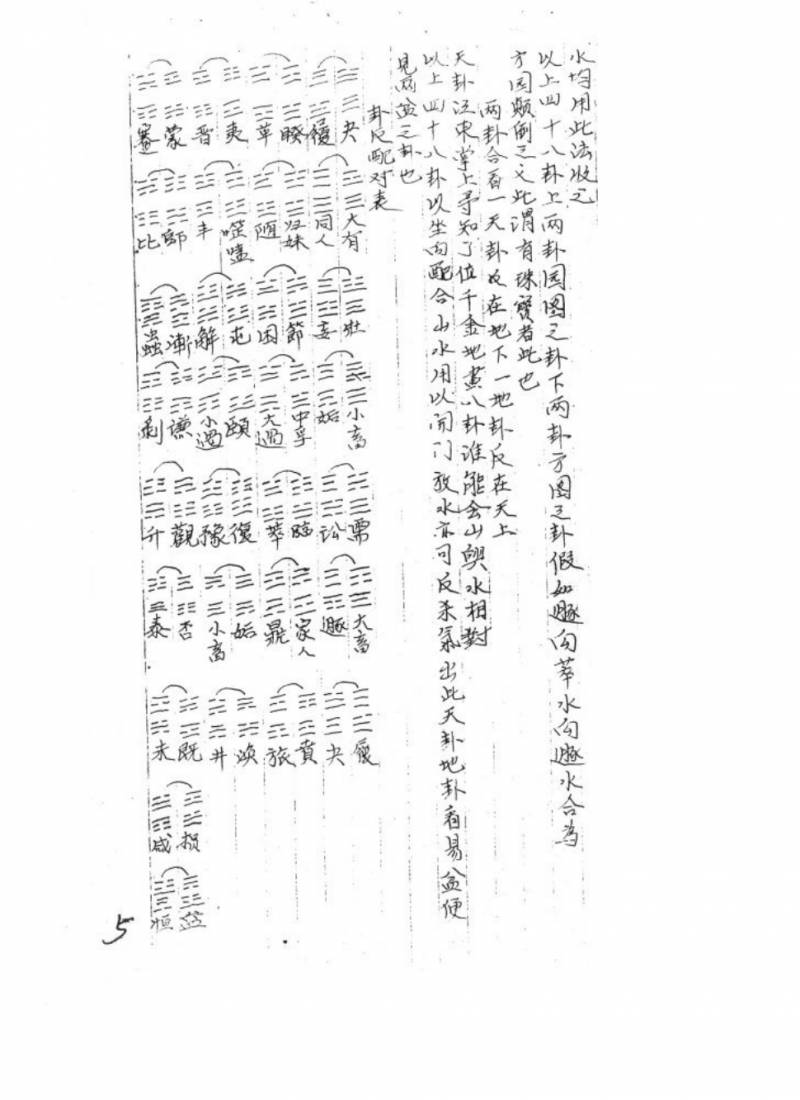 水均用此法收之
以上四十八卦上两卦园图之卦下两卦方图之卦假如遯向萃水向遯水合为
方园颠倒之义此谓有珠寶者此也
两卦合看一天卦反在地下一地卦反在天上
天卦江東掌上寻知了位千金地畫八卦谁能会山與水相對
以上四十八卦以坐向配合山水用以開门放水亦可反杀氣出此天卦地卦看易盆便
見两盆之卦也
卦反配对表
夬 履 睽 革 夷 晋 蒙 蹇
大有 同人 归妹 随 噬嗑 丰 師 比
壮 妄 節 困 屯 解 漸 蠱
小畜 姤 中孚 大過 頤 小過 謙 剥
需 讼 臨 萃 復 豫 觀 升
大畜 遯 家人 鼎 姤 小畜 否 泰
履 夬 賁 旅 渙 井 既 未
损 咸
益 恒
5